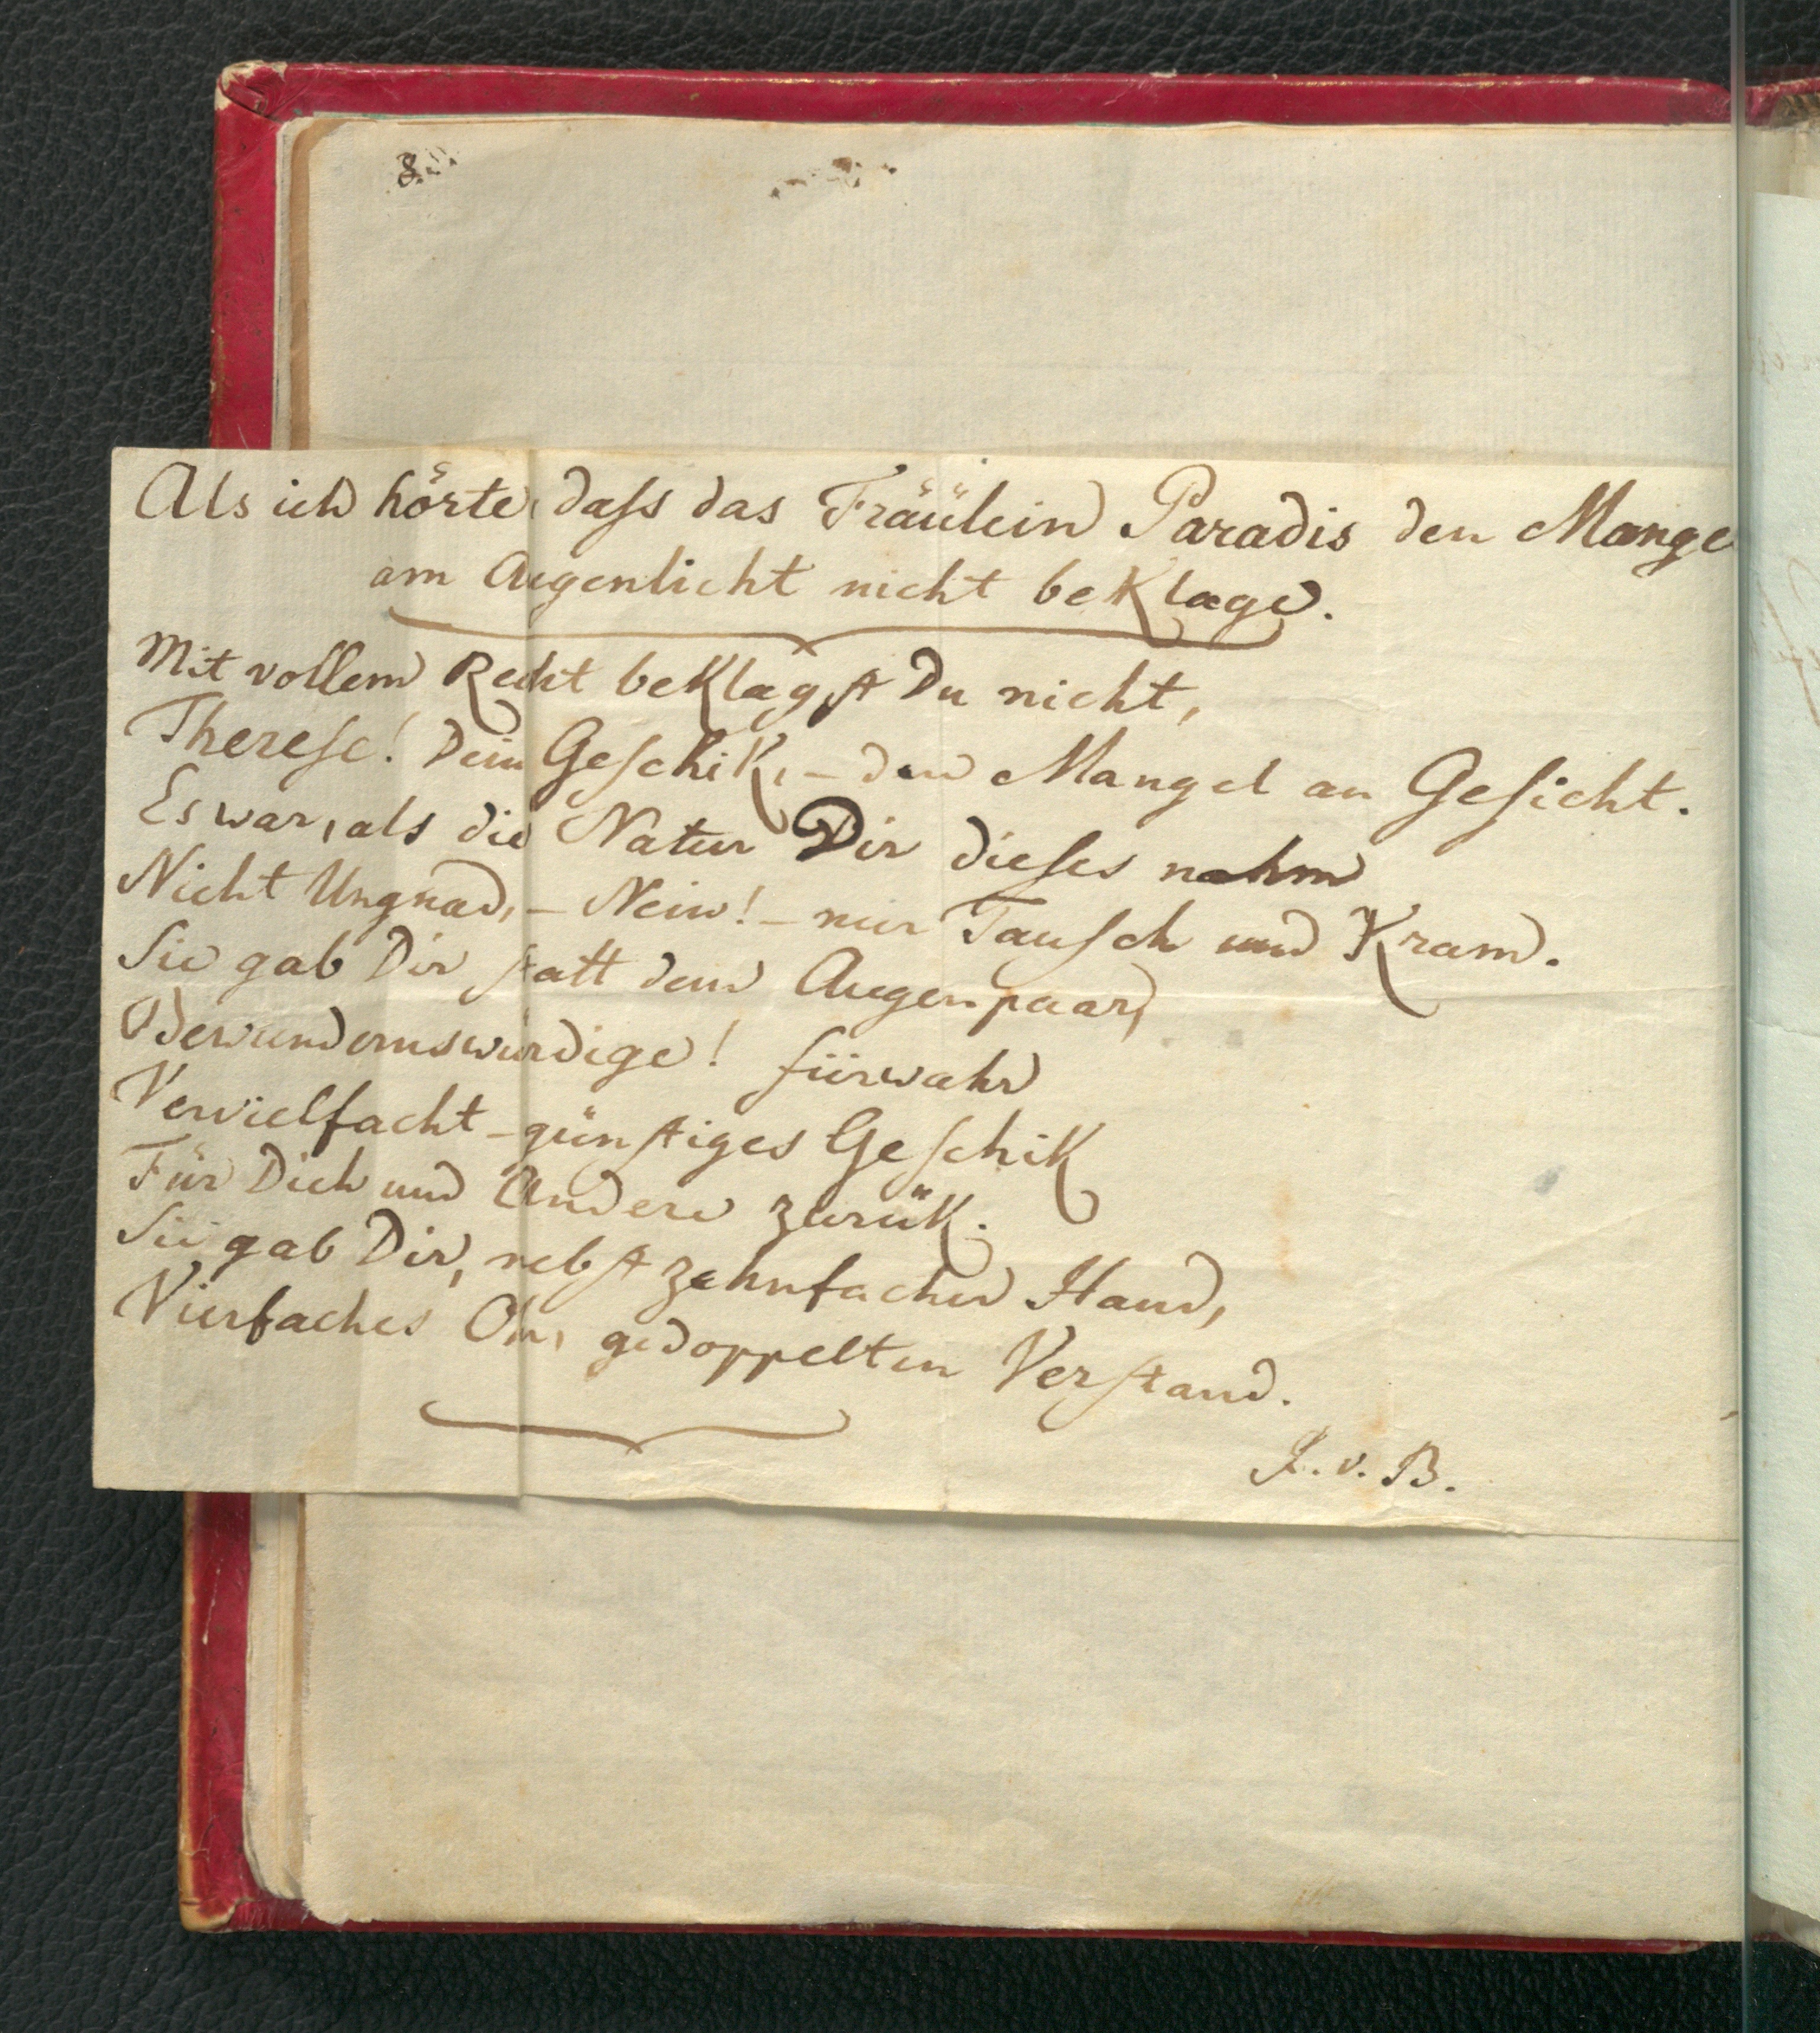 8.
Als ich hörte, dass das Fräülein Paradis den Mange
am Augenlicht nicht beklage.
Mit vollem Recht beklagst Du nicht,
Therese! Dein Geschik, – den Mangel an Gesicht.
Es war, als die Natur Dir dieses nahm
Nicht Ungnad, – Nein! – nur Tausch und Kram.
Sie gab Dir statt dem Augenpaar,
Bewundernswürdige! fürwahr
Vervielfacht – günstiges Geschik
Für Dich und Andere zurük.
Sie gab Dir, nebst zehnfacher Hand,
Vierfaches Ohr, gedoppelten Verstand.
v. B.